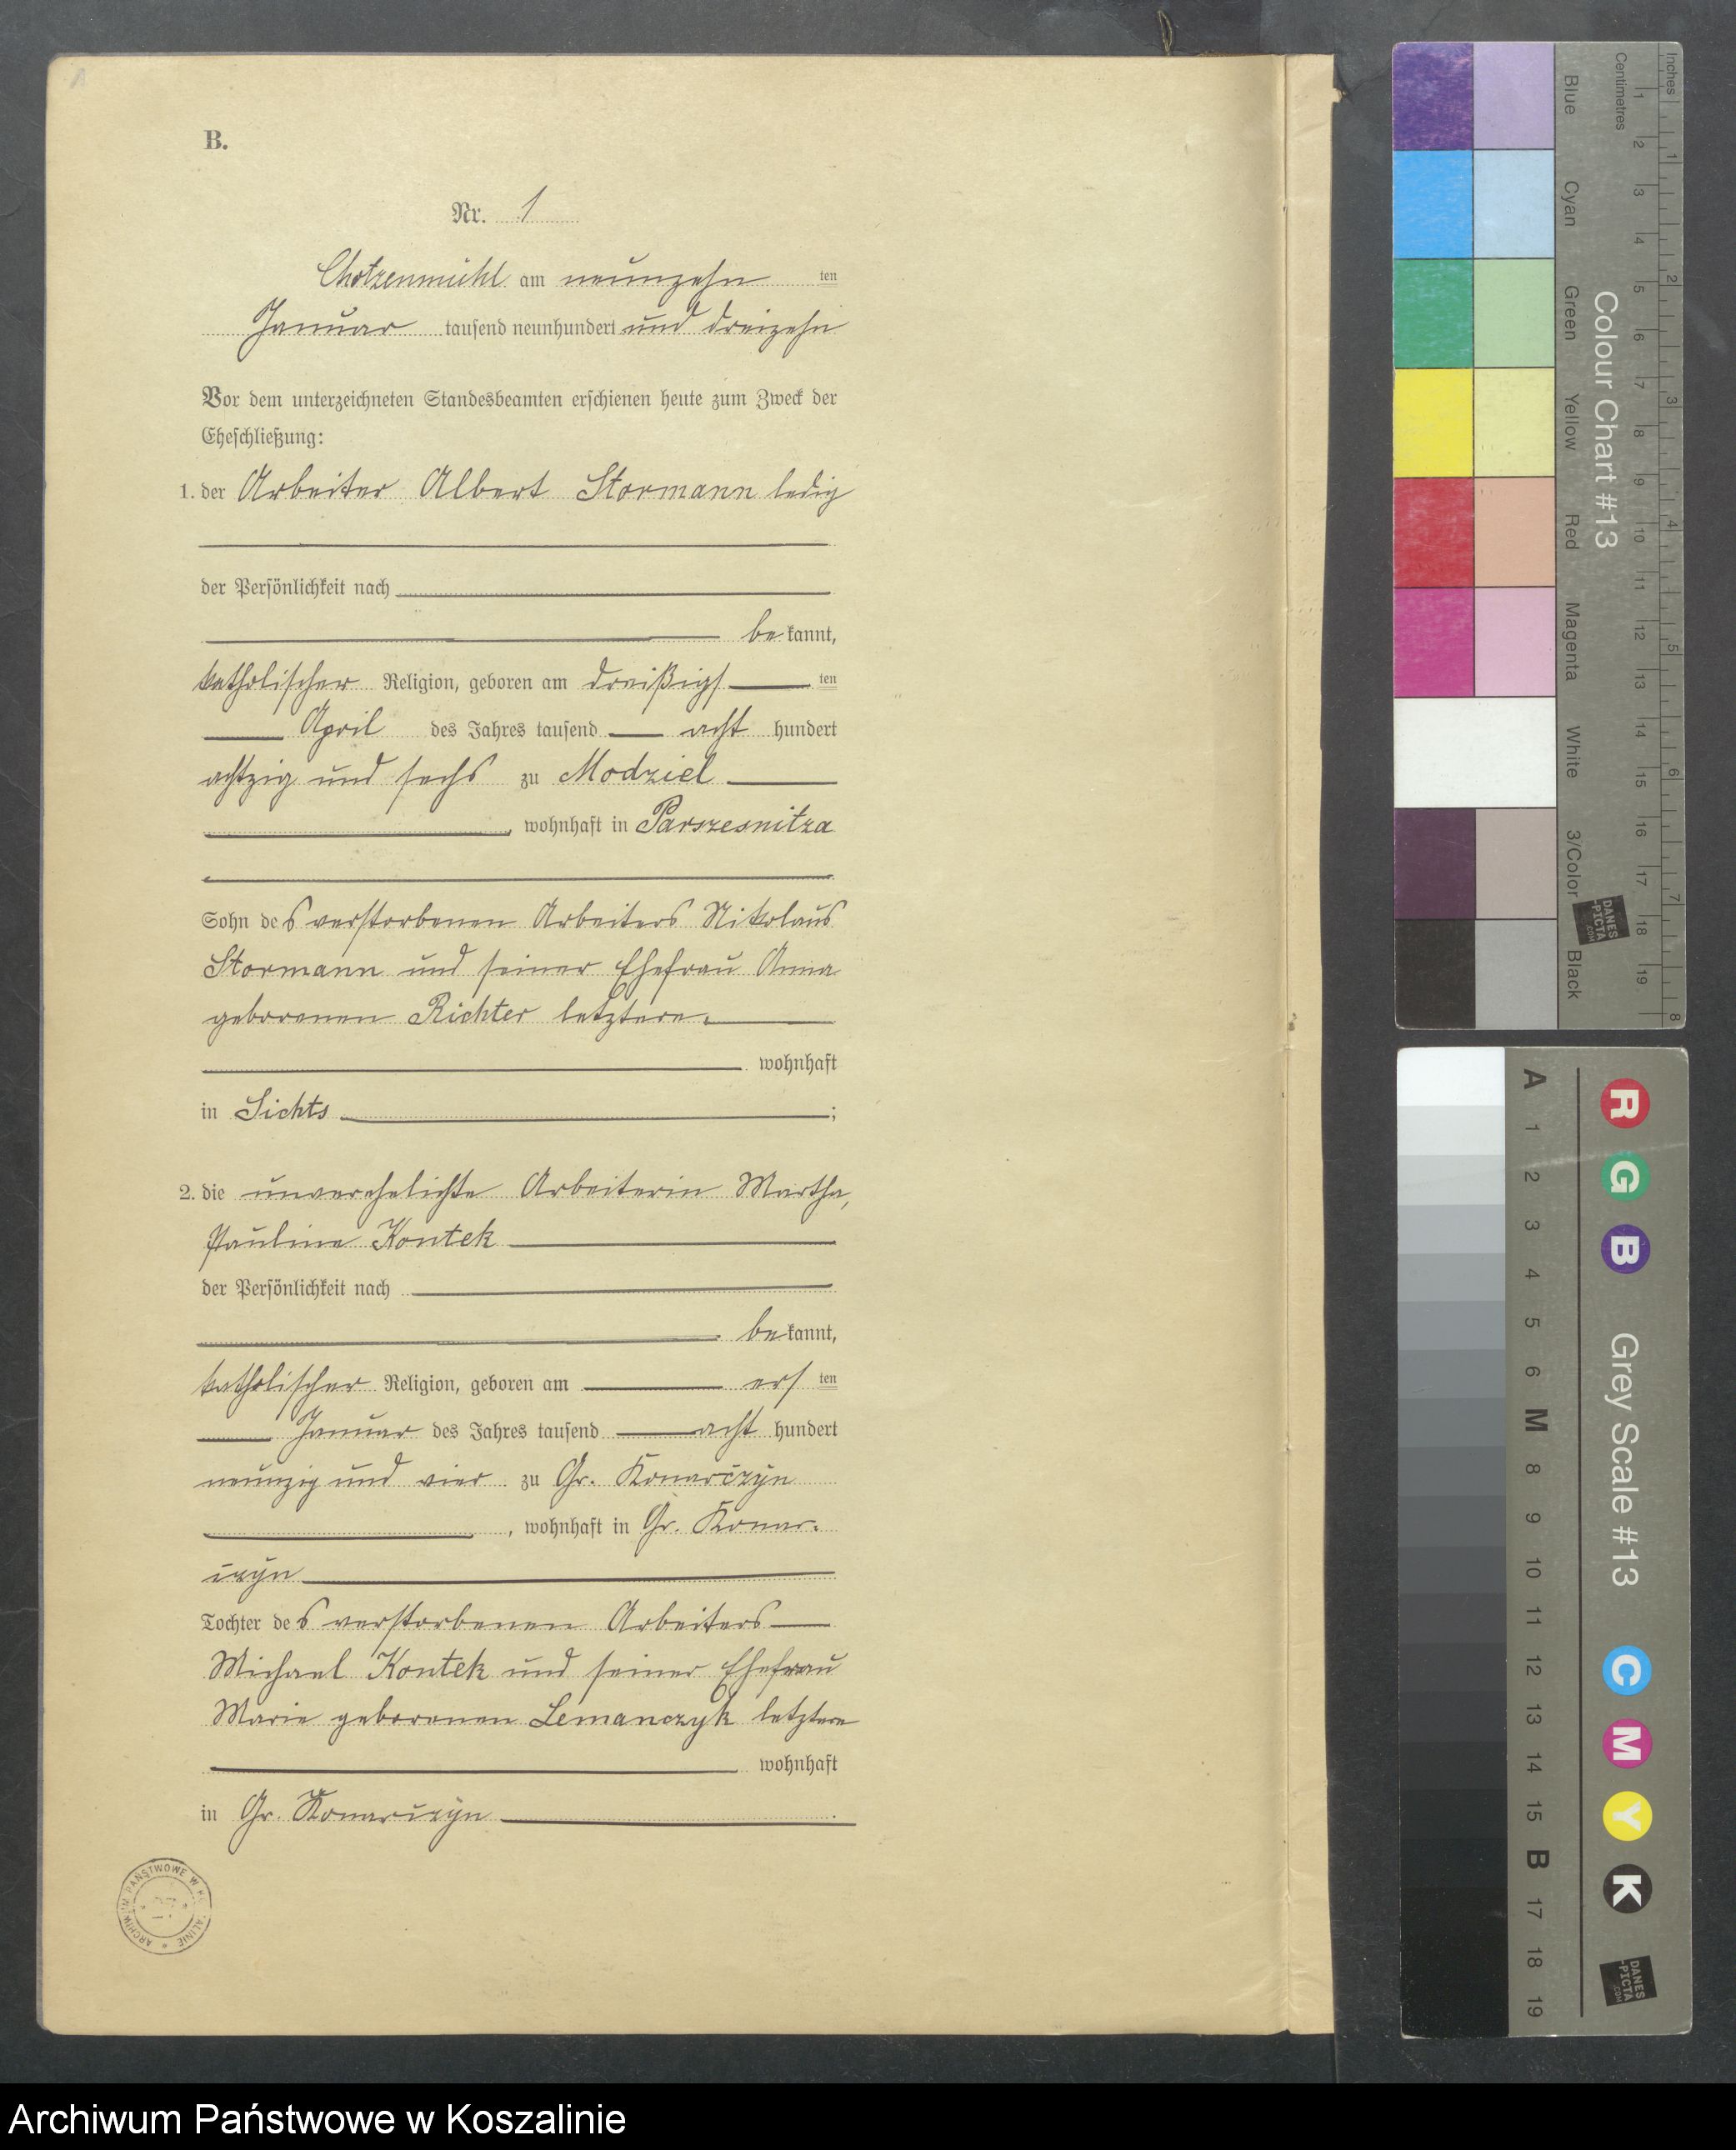 B.
Nr. 1
Chotzenmühl am neunzehn ten
Januar tausend neunhundert und dreizehn
Vor dem unterzeichneten Standesbeamten erschienen heute zum Zweck der
Eheschließung:
1. der Arbeiter Albert Stormann ledig
der Persönlichkeit nach
be kannt,
katholischer Religion, geboren am dreißigs ten
April des Jahres tausend acht hundert
achtzig und sechs zu Modziel
, wohnhaft in Parszesnitza
Sohn des verstorbenen Arbeiters Nikolaus
Stormann und seiner Ehefrau Anna
geborenen Richter letztere
wohnhaft
in Lichts ;
2. die unverehelichte Arbeiterin Martha,
Pauline Kontek
der Persönlichkeit nach
be kannt,
katholischer Religion, geboren am ers ten
Januar des Jahres tausend acht hundert
neunzig und vier zu Gr. Konarczyn
, wohnhaft in Gr. Konar-
czyn
Tochter des verstorbenen Arbeiters
Michael Kontek und seiner Ehefrau
Marie geborenen Lemanczyk letztere
wohnhaft
in Gr. Konarczyn .
ARCHIWUM PAŃSTWOWE W KOSZALINIE
Archiwum Państwowe w Koszalinie
Inches
Centimetres
1 2 3 4 5 6 7 8 9 10 11 12 13 14 15 16 17 18 19
1 2 3 4 5 6 7 8
Colour Chart #13
Blue
Cyan
Green
Yellow
Red
Magenta
White
3/Color
Black
DANES
-PICTA
.COM
Grey Scale #13
R G B
C M Y K
A 1 2 3 4 5 6 M 8 9 10 11 12 13 14 15 B 17 18 19
DANES
-PICTA
.COM